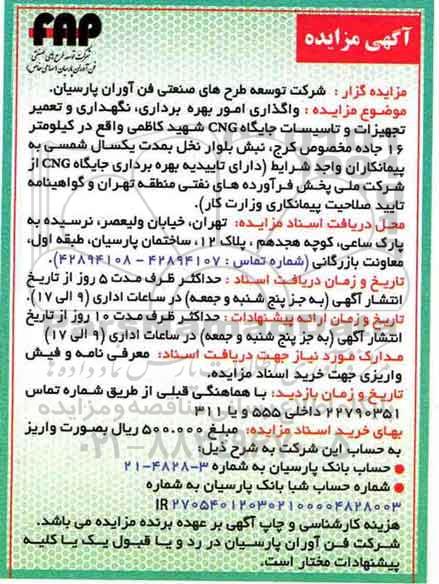 FAP
شرکت توسعه طرح های صنعتی
فن آوران پارسیان (سهامی خاص)
آگهی مزایده
مزایده گزار : شرکت توسعه طرح های صنعتی فن آوران پارسیان.
موضوع مزایده : واگذاری امور بهره برداری، نگهداری و تعمیر
تجهیزات و تاسیسات جایگاه CNG شهید کاظمی واقع در کیلومتر
۱۶ جاده مخصوص کرج، نبش بلوار نخل بمدت یکسال شمسی به
پیمانکاران واجد شرایط (دارای تاییدیه بهره برداری جایگاه CNG از
شرکت ملی پخش فرآورده های نفتی منطقه تهران و گواهینامه
تایید صلاحیت پیمانکاری وزارت کار).
محل دریافت اسناد مزایده: تهران، خیابان ولیعصر، نرسیده به
پارک ساعی، کوچه هجدهم ، پلاک ۱۲، ساختمان پارسیان، طبقه اول،
معاونت بازرگانی (شماره تماس : ۴۲۸۹۴۱۰۷ - ۴۲۸۹۴۱۰۸).
تاریخ و زمان دریافت اسناد : حداکثر ظرف مدت ۵ روز از تاریخ
انتشار آگهی (به جز پنج شنبه و جمعه) در ساعات اداری (۹ الی ۱۷).
تاریخ و زمان ارائه پیشنهادات : حداکثر ظرف مدت ۱۰ روز از تاریخ
انتشار آگهی (به جز پنج شنبه و جمعه) در ساعات اداری (۹ الی ۱۷)
مدارک مورد نیاز جهت دریافت اسناد: معرفی نامه و فیش
واریزی جهت خرید اسناد مزایده
تاریخ و زمان بازدید: با هماهنگی قبلی از طریق شماره تماس
۲۲۷۹۰۳۵۱ داخلی ۵۵۵ و یا ۳۱۱
بهای خرید اسناد مزایده: مبلغ ۵۰۰.۰۰۰ ریال بصورت واریز
به حساب این شرکت به شرح ذیل:
● حساب بانک پارسیان به شماره ۳-۴۸۲۸-۲۱
● شماره حساب شبا بانک پارسیان به شماره
IR ۲۷۰۵۴۰۱۲۰۳۰۲۱۰۰۰۰۴۸۲۸۰۰۳
هزینه کارشناسی و چاپ آگهی بر عهده برنده مزایده می باشد.
شرکت فن آوران پارسیان در رد و یا قبول یک یا کلیه
پیشنهادات مختار است.